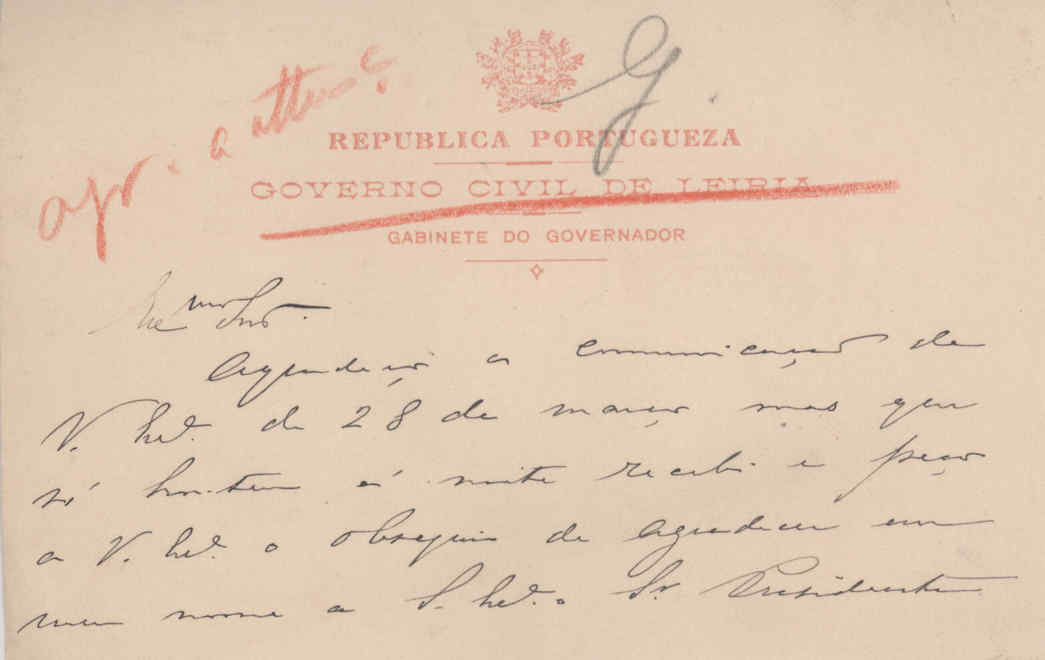 apr. a
G.
REPUBLICA PORTUGUEZA
GOVERNO CIVIL DE LEIRIA
GABINETE DO GOVERNADOR
Exe.mo Snr.
Agradeço a communicação de
V. Exª. de 28 de março mas que
só hontem á noite recebi e peço
a V. Exª. o obsequio de agradecer em
meu nome a S. Exª. o Sr. Presidente